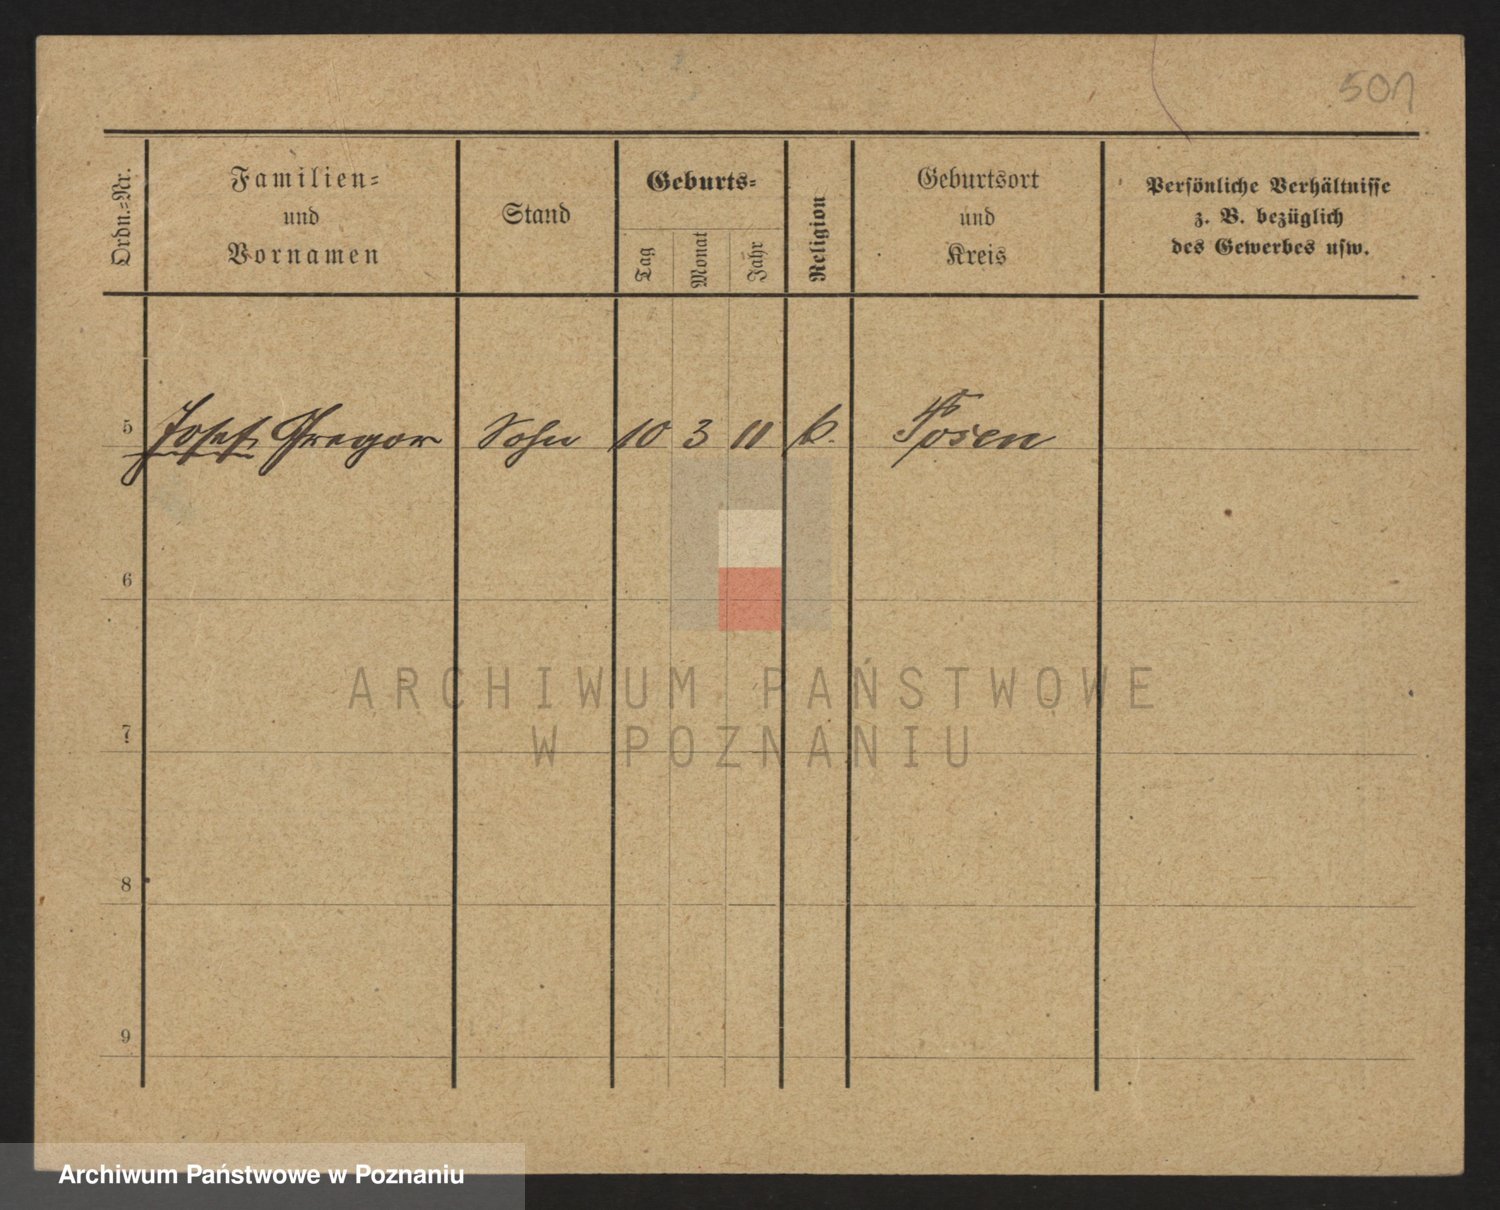 501
Ordn.-Nr.
Familien-
und
Vornamen
Stand
Geburts-
Tag
Monat
Jahr
Religion
Geburtsort
und
Kreis
Persönliche Verhältnisse
z. B. bezüglich
des Gewerbes usw.
5 Josef Gregor Sohn 10 3 11 k. Posen
6
7
8
9
ARCHIWUM PAŃSTWOWE
W POZNANIU
Archiwum Państwowe w Poznaniu